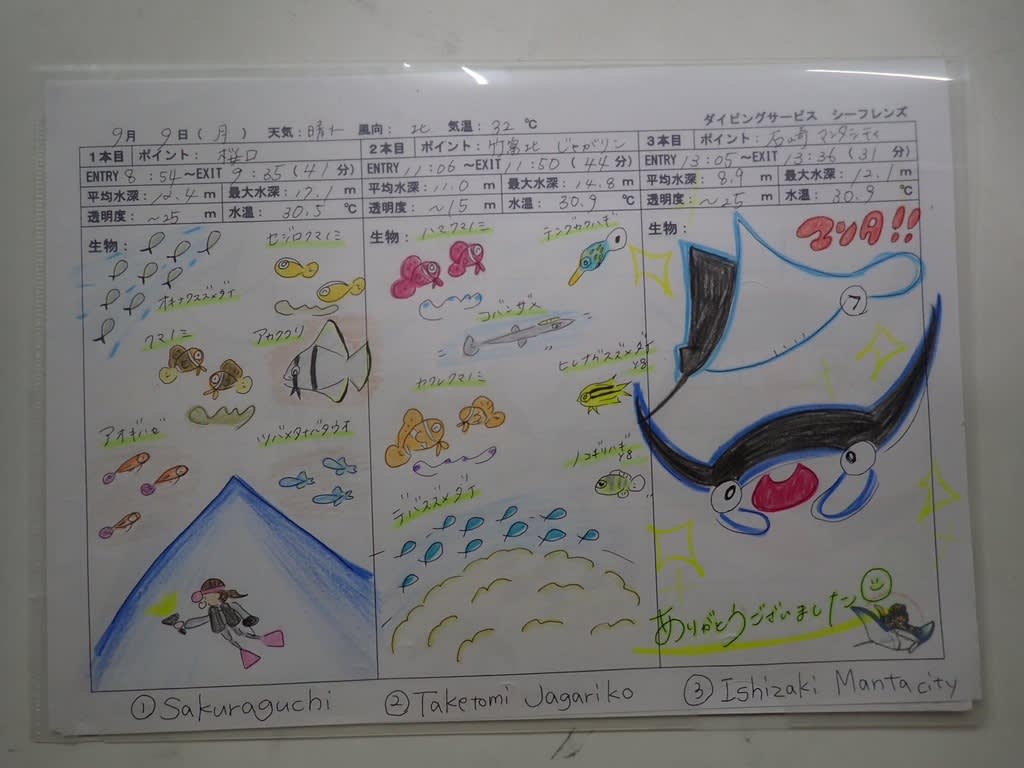 ダイビングサービス シーフレンズ
9月 9日(月) 天気:晴れ 風向:北 気温:32℃
1本目 ポイント: 桜口
ENTRY 8:54~EXIT 9:35(41分)
平均水深:12.4m 最大水深:17.1m
透明度:~25m 水温:30.5℃
生物:
セジロクマノミ
オキナワスズメダイ
クマノミ
アカククリ
アオギハゼ
ツバメタナバタウオ
2本目 ポイント:竹富北 じゃがリコ
ENTRY 11:06~EXIT 11:50(44分)
平均水深:11.0m 最大水深:14.8m
透明度:~15m 水温:30.9℃
生物:
ハマクマノミ
テングカワハギ
コバンザメ
ヒレナガスズメダイ
yg
カクレクマノミ
ノコギリハギ
yg
デバスズメダイ
3本目 ポイント:石崎 マンタシティ
ENTRY 13:05~EXIT 13:36(31分)
平均水深:8.9m 最大水深:12.1m
透明度:~25m 水温:30.9℃
生物:
マンタ!!
ありがとうございました
① Sakuraguchi
② Taketomi Jagariko
③ Ishizaki Manta city